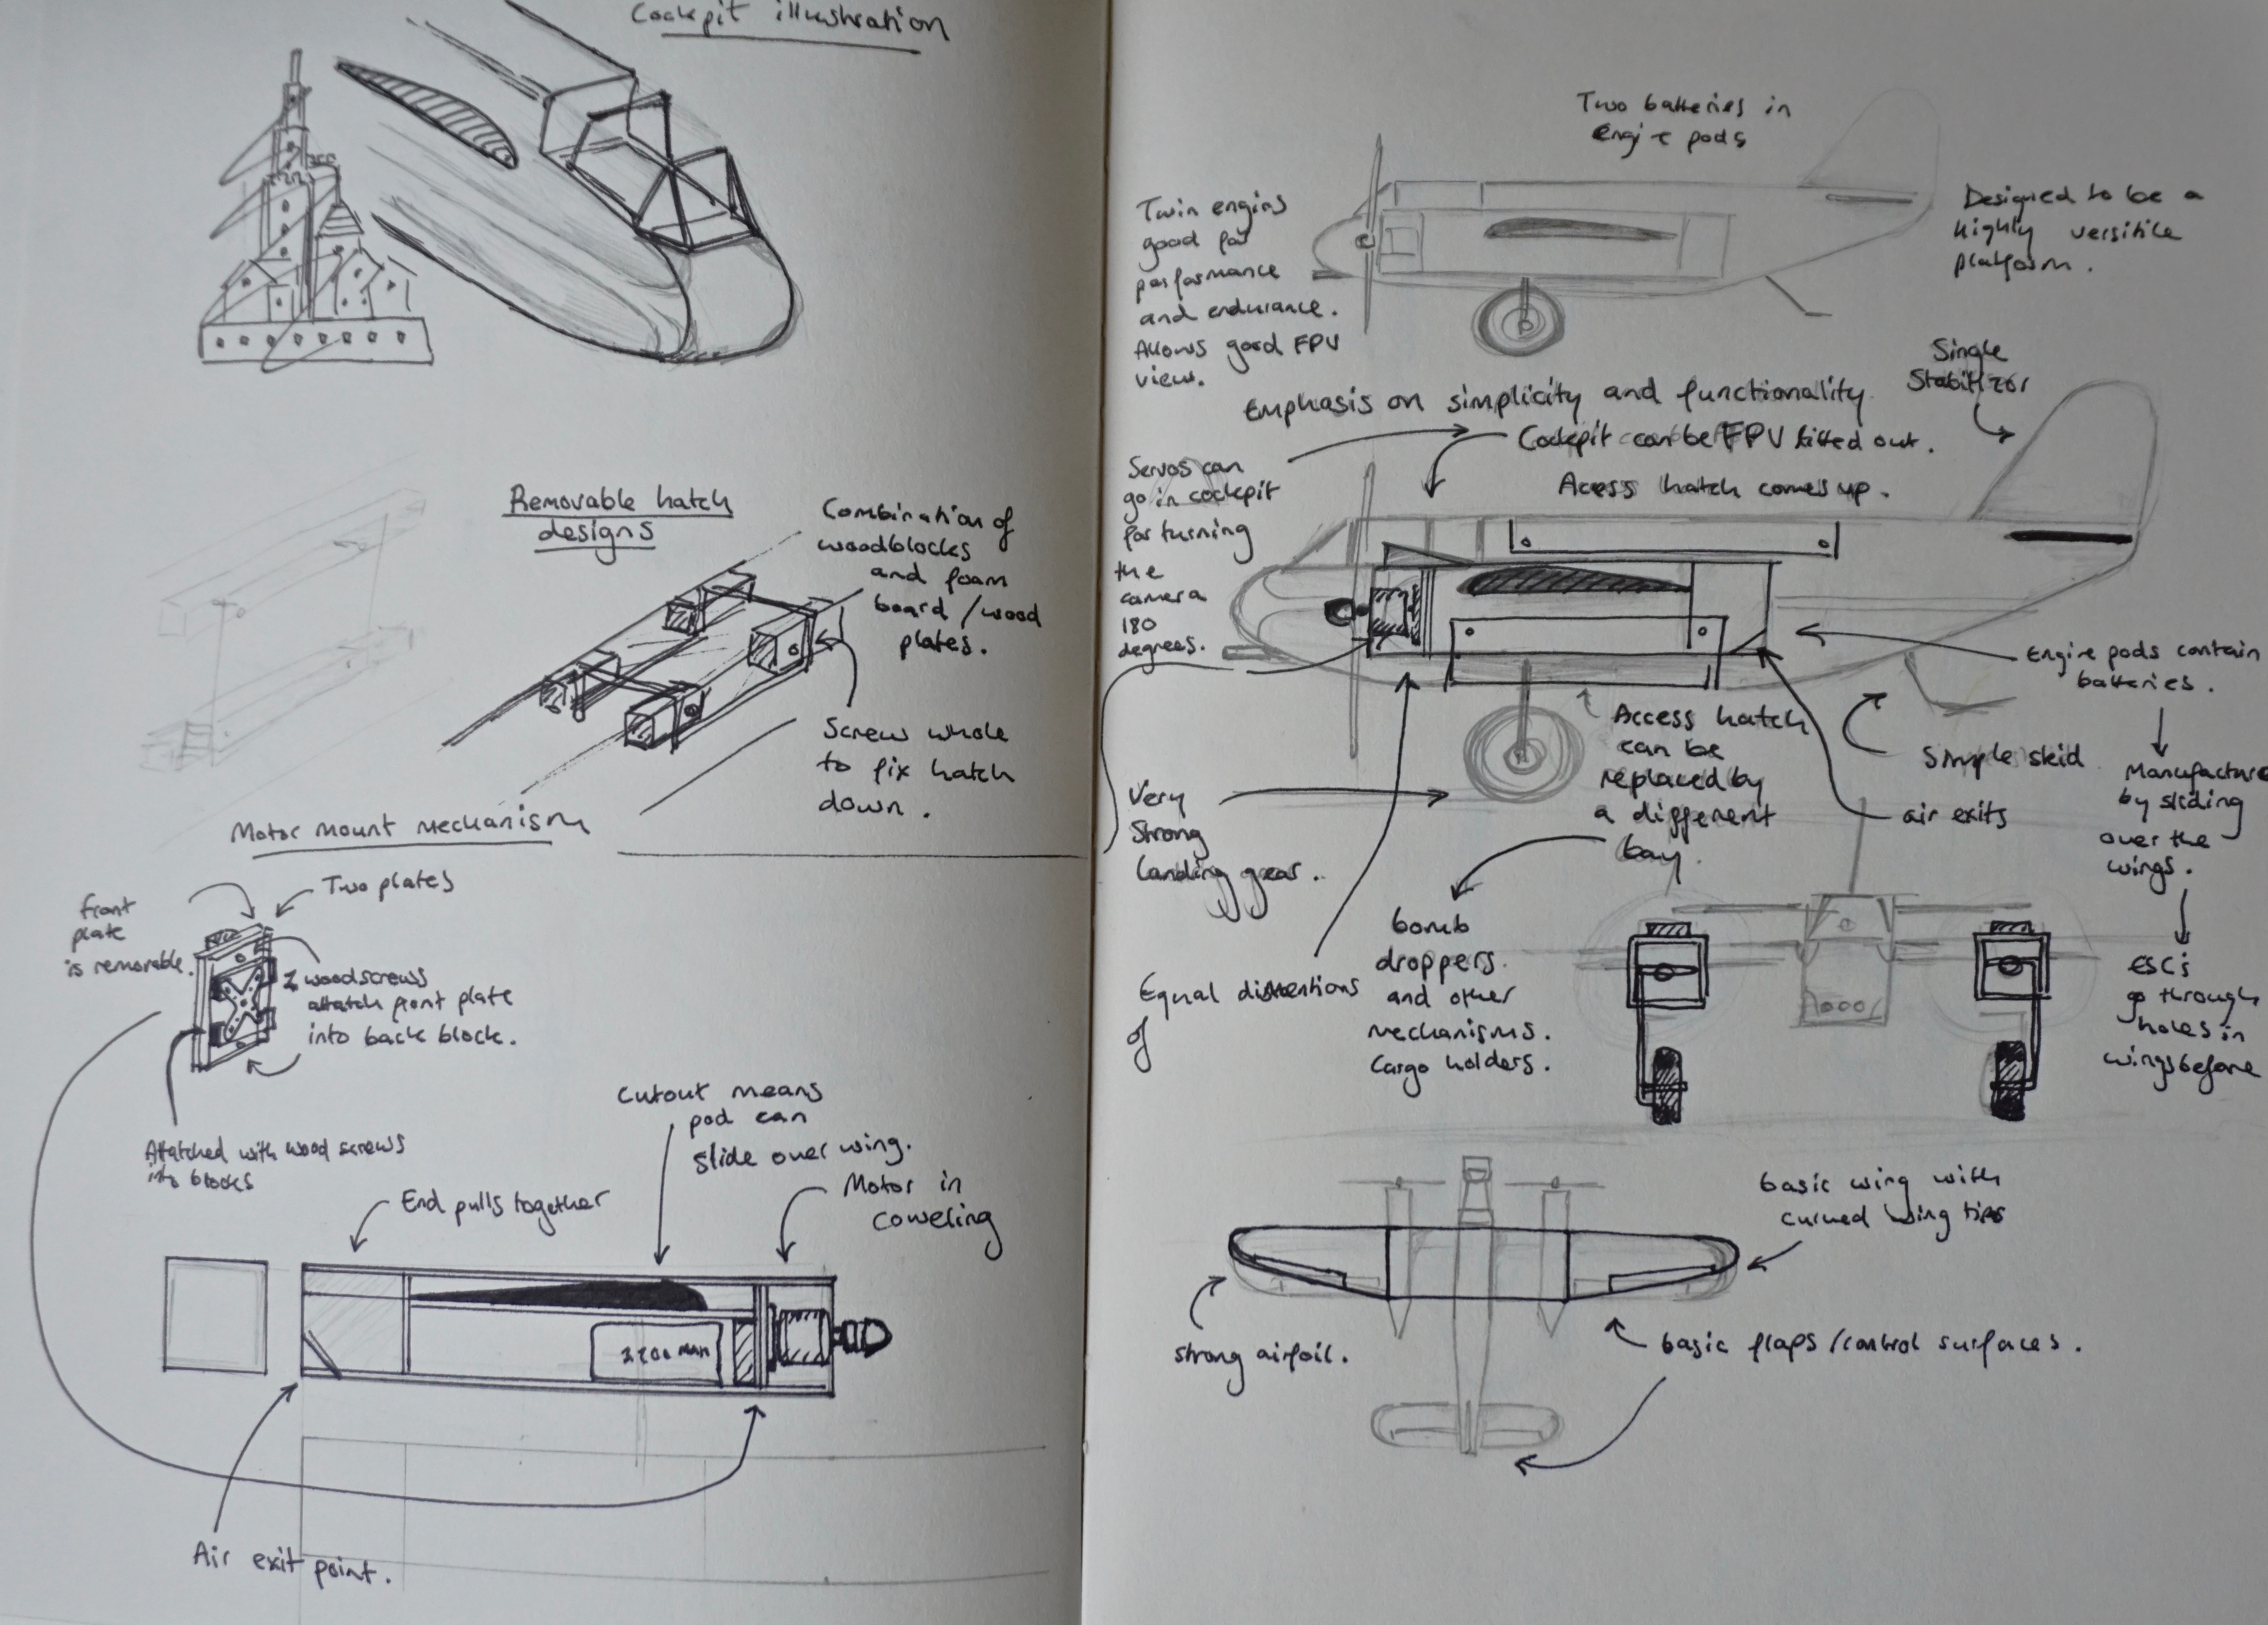 Cockpit illustration
Removable hatch
designs
Combination of
woodblocks
and foam
board / wood
plates.
Screw whole
to fix hatch
down.
Motor mount mechanism
Two plates
front
plate
is removable.
2 woodscrews
attatch front plate
into back block.
Attatched with wood screws
into blocks
Cutout means
pod can
slide over wing.
End pulls together
Motor in
coweling
2200 MAH
Air exit point.
Two batteries in
engine pods
Twin engins
good for
performance
and endurance.
Allows good FPV
view.
Designed to be a
highly versitile
platform.
Single
Stabilizor
Emphasis on simplicity and functionality
Cockpit can be FPV fitted out.
Acess hatch comes up.
Servos can
go in cockpit
for turning
the
camera
180
degrees.
Engine pods contain
batteries.
Manufacture
by sliding
over the
wings.
ESC's
go through
holes in
wings before
Simple skid
air exits
Access hatch
can be
replaced by
a different
bay.
Very
strong
landing gear.
bomb
droppers.
and other
mechanisms.
Cargo holders.
Equal
of
basic wing with
curved wing tips
strong airfoil.
basic flaps / control surfaces.